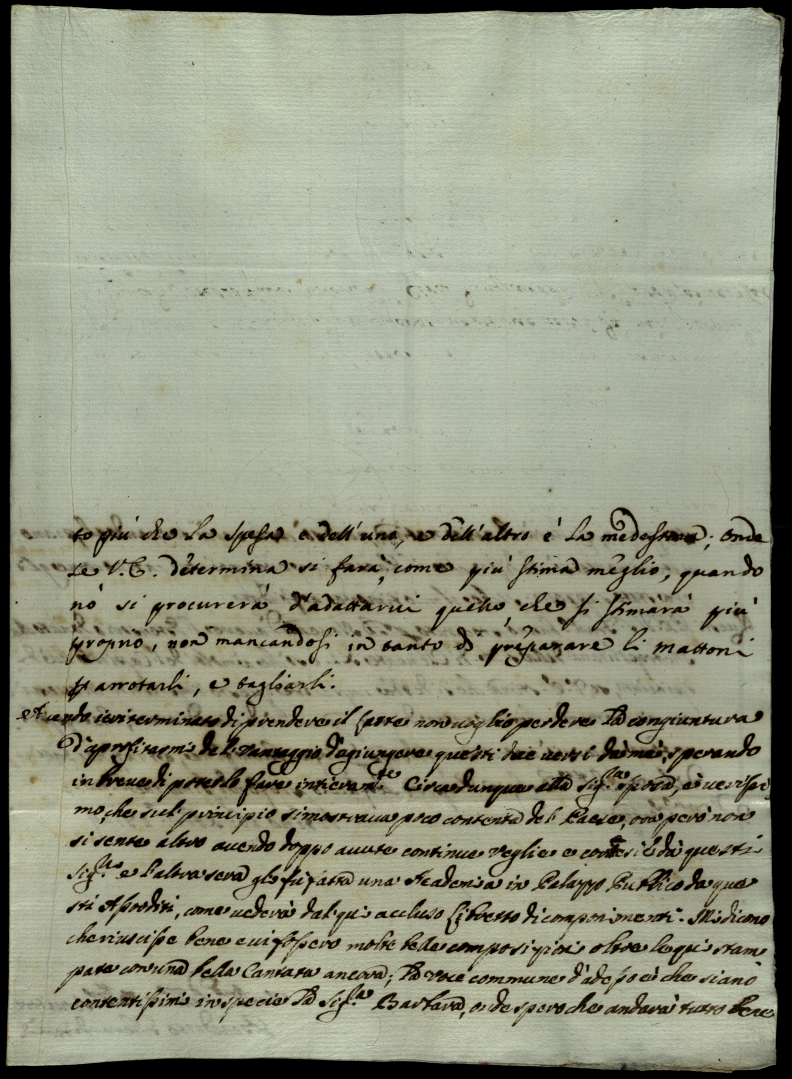 to più che la spesa e dell'una, e dell'altro è la medesima; onde
se V. E. determina si farà, come più stima meglio, quando
nò si procurerà d'adattarvi quello che si stimarà più
proprio, non mancandosi in tanto di preparare li mattoni
p arrotarli, e tagliarli.
Avendo ieri terminato di prendere il latte non voglio perdere la congiuntura
d'aprofitarmi del vantaggio d'agiungere questi due versi da mè, sperando
in breve di poterlo fare interam.te Circa dunque alla Sig.ra sposa, è verissi
mo, che sul principio si mostrava poco contenta del Paese, ora però non
si sente altro avendo doppo avute continue veglie e cortesie da questi
Sig.ri e l'altra sera gli fù fatta una Academia in Palazzo Publico da que
sti, come vederà dal qui accluso Libretto di componimenti. Mi dicono
che riuscisse bene e vi fossero molte belle composizioni oltre le qui stam
pate con una bella Cantata ancora; la voce commune d'adesso è che siano
contentissimi in specie la Sig.ra Barbara, onde spero che andarà tutto bene